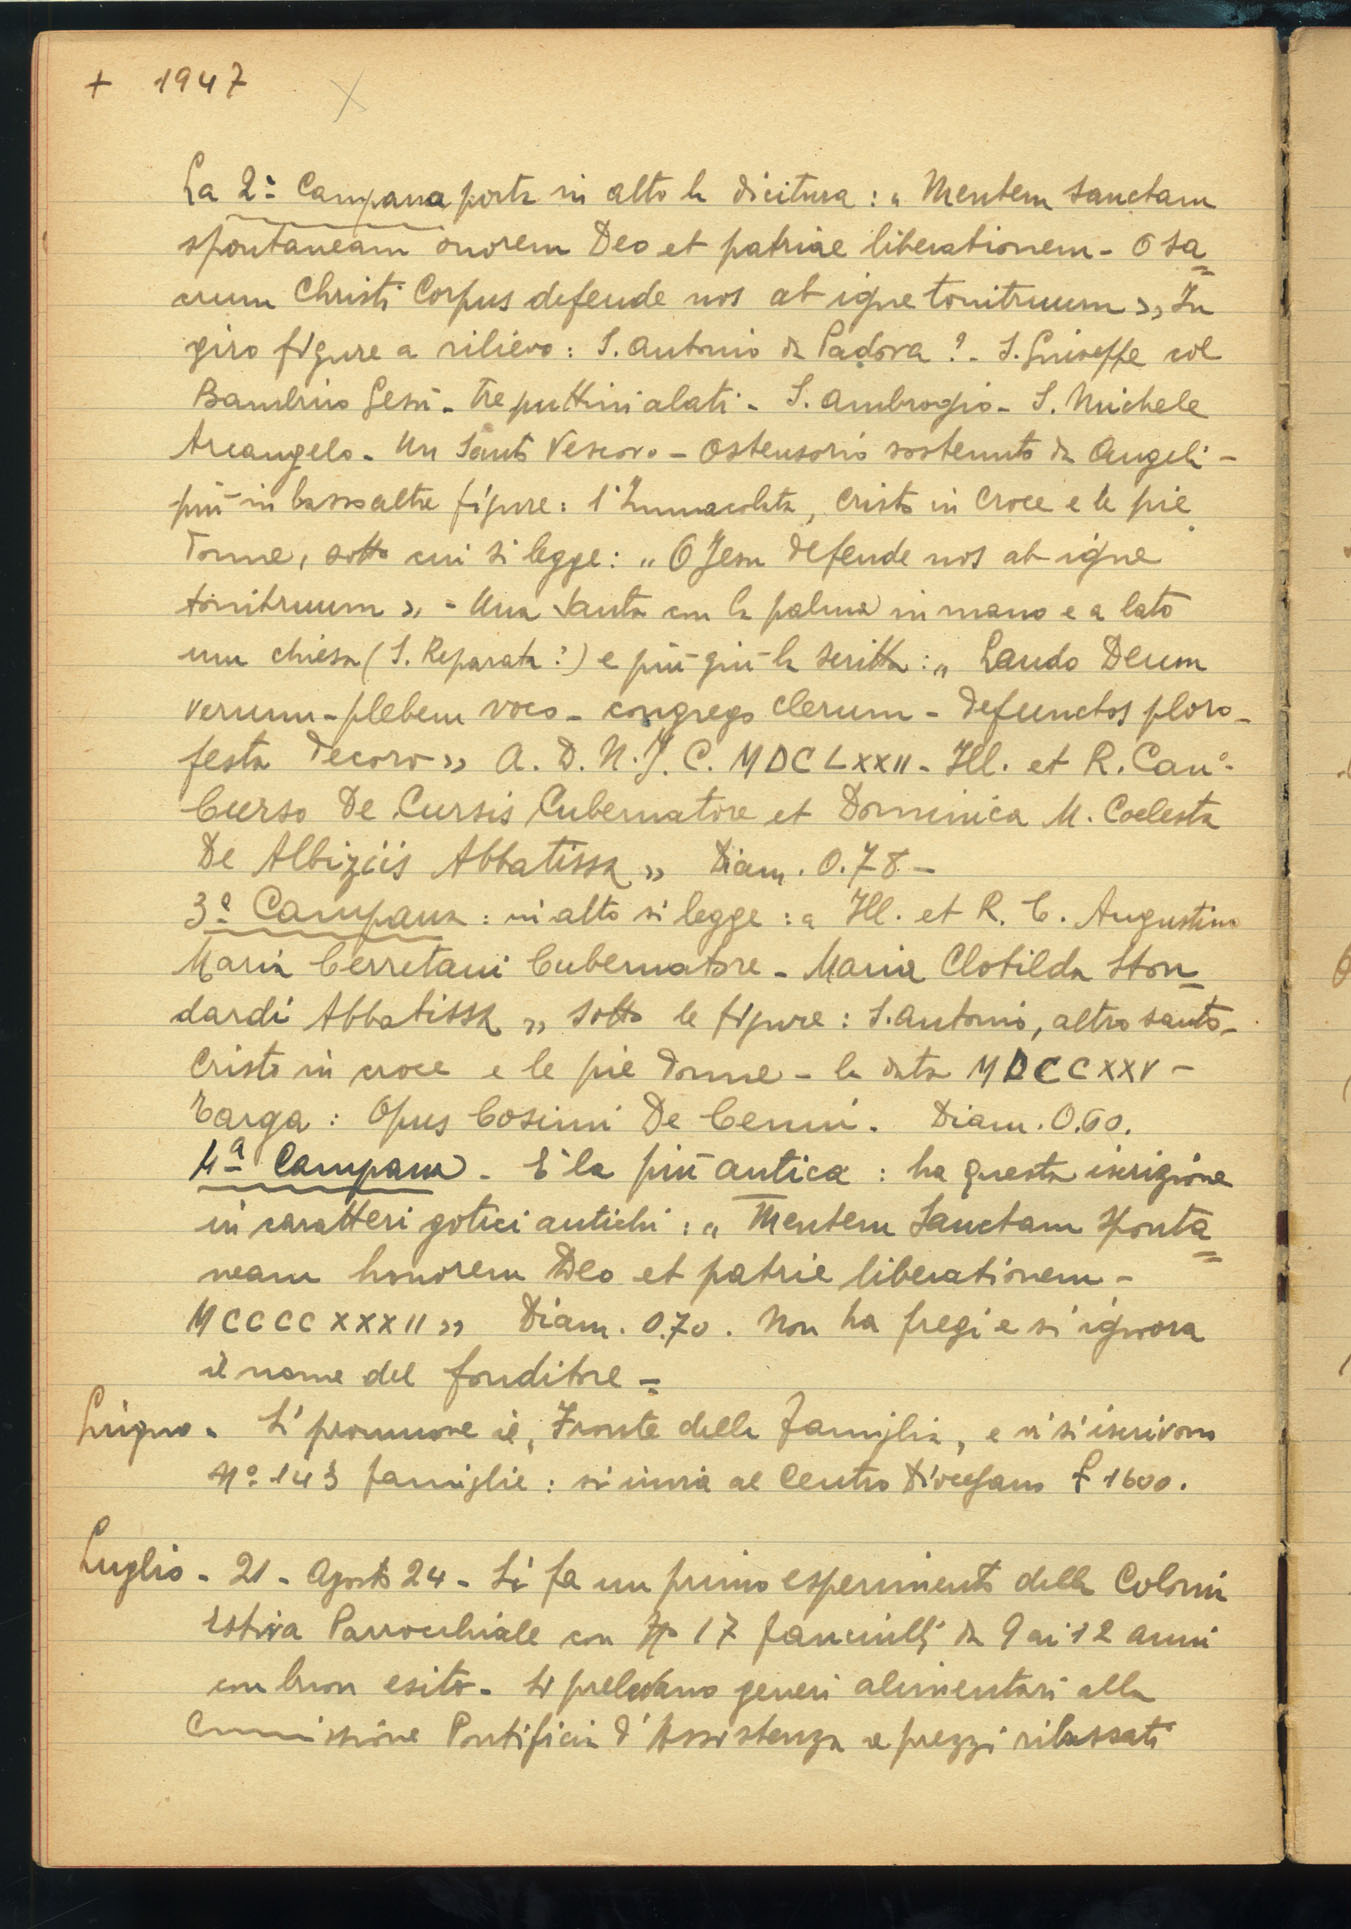 + 1947
La 2ª Campana porta in alto la dicitura: "Mentem sanctam
spontaneam onorem Deo et patriae liberationem - O sa=
crum Christi Corpus defende nos ab igne tonitruum» In
giro figure a rilievo: S. Antonio da Padova? - S. Giuseppe col
Bambino Gesù - Tre puttini alati - S. Ambrogio - S. Michele
Arcangelo - Un Santo Vescovo - Ostensorio sostenuto da Angeli -
più in basso altre figure: l'Immacolata, Cristo in Croce e le pie
Donne, sotto cui si legge: "O Jesu defende nos ab igne
tonitruum» - Una Santa con la palma in mano e a lato
una chiesa (S. Reparata?) e più giù la scritta: "Laudo Deum
verum - plebem voco - congrego clerum - defunctos ploro -
festa decoro» A. D. N. J. C. MDCLXXII - Ill. et R. Canº.
Curso De Cursis Cubernatore et Dominica M. Coelesta
De Albiziis Abbatissa» Diam. 0.78 -
3ª Campana: in alto si legge: "Ill. et R. C. Augustino
Maria Cerretani Cubernatore - Maria Clotilda Ston=
dardi Abbatissa» sotto le figure: S. Antonio, altro santo -
Cristo in croce e le pie donne - la data MDCCXXV -
Targa: Opus Cosimi De Cenni. Diam. 0.60.
4ª Campana - È la più antica: ha questa iscrizione
in caratteri gotici antichi: "Mentem Sanctam sponta=
neam honorem Deo et patrie liberationem -
MCCCCXXXII» Diam. 0.70. Non ha fregi e si ignora
il nome del fonditore =
Giugno - Si promuove il "Fronte della Famiglia" e vi si iscrivono
Nº 143 famiglie: si invia al Centro Diocesano £ 1600.
Luglio - 21 - Agosto 24 - Si fa un primo esperimento della Colonia
Estiva Parrocchiale con Nº 17 fanciulli da 9 ai 12 anni
con buon esito - Si prelevano generi alimentari alla
Commissione Pontificia d'Assistenza a prezzi ribassati